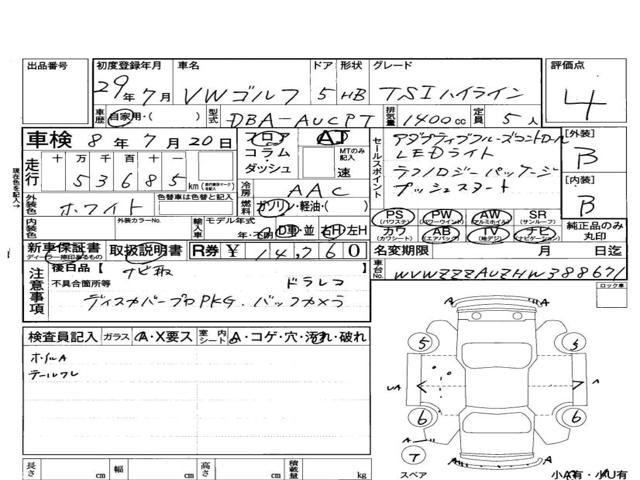 出品番号 初度登録年月 車名 ドア 形状 グレード 評価点
29年7月 VWゴルフ 5 HB TSIハイライン 4
車歴 自家用・( ) 型式 DBA-AUCPT 排気量 1400cc 定員 5人
車検 8年7月20日 フロア コラム・ダッシュ AT MTのみ記入 速
走行 十万千百十一 53685 km
冷房 AAC
セールスポイント アダプティブクルーズコントロール
LEDライト
テクノロジーパッケージ
プッシュスタート
[外装] B
[内装] B
外装色 ホワイト 色替車は色替と記入 燃料 ガソリン・軽油・( )
内装色 外装カラーNo. 輸入車 モデル年式 年・不明 D車・並 右H・左H
PS (パワステ) PW (パワーウインド) AW (アルミホイル) SR (サンルーフ)
カワ (カワシート) AB (エアバック) TV (地デジ) ナビ (ナビゲーション)
純正品のみ丸印
新車保証書 取扱説明書 R券 ¥14,760 名変期限 月 日迄
ディーラー捺印あるもの
車台No. WVWZZZAUZHW388671
現在色を記入→
注意事項 後日品〔ナビ取
不具合箇所等 ドラレコ
ディスカバープロPKG. バックカメラ
ロック車
検査員記入 ガラス A・X要ス 室内シート A・コゲ・穴・汚れ・破れ
ホイルA
テールワレ
5 5
UA A
6 6
A
T A A
スペア 小A有・小U有
長さ cm 幅 cm 高さ cm 積載量 kg